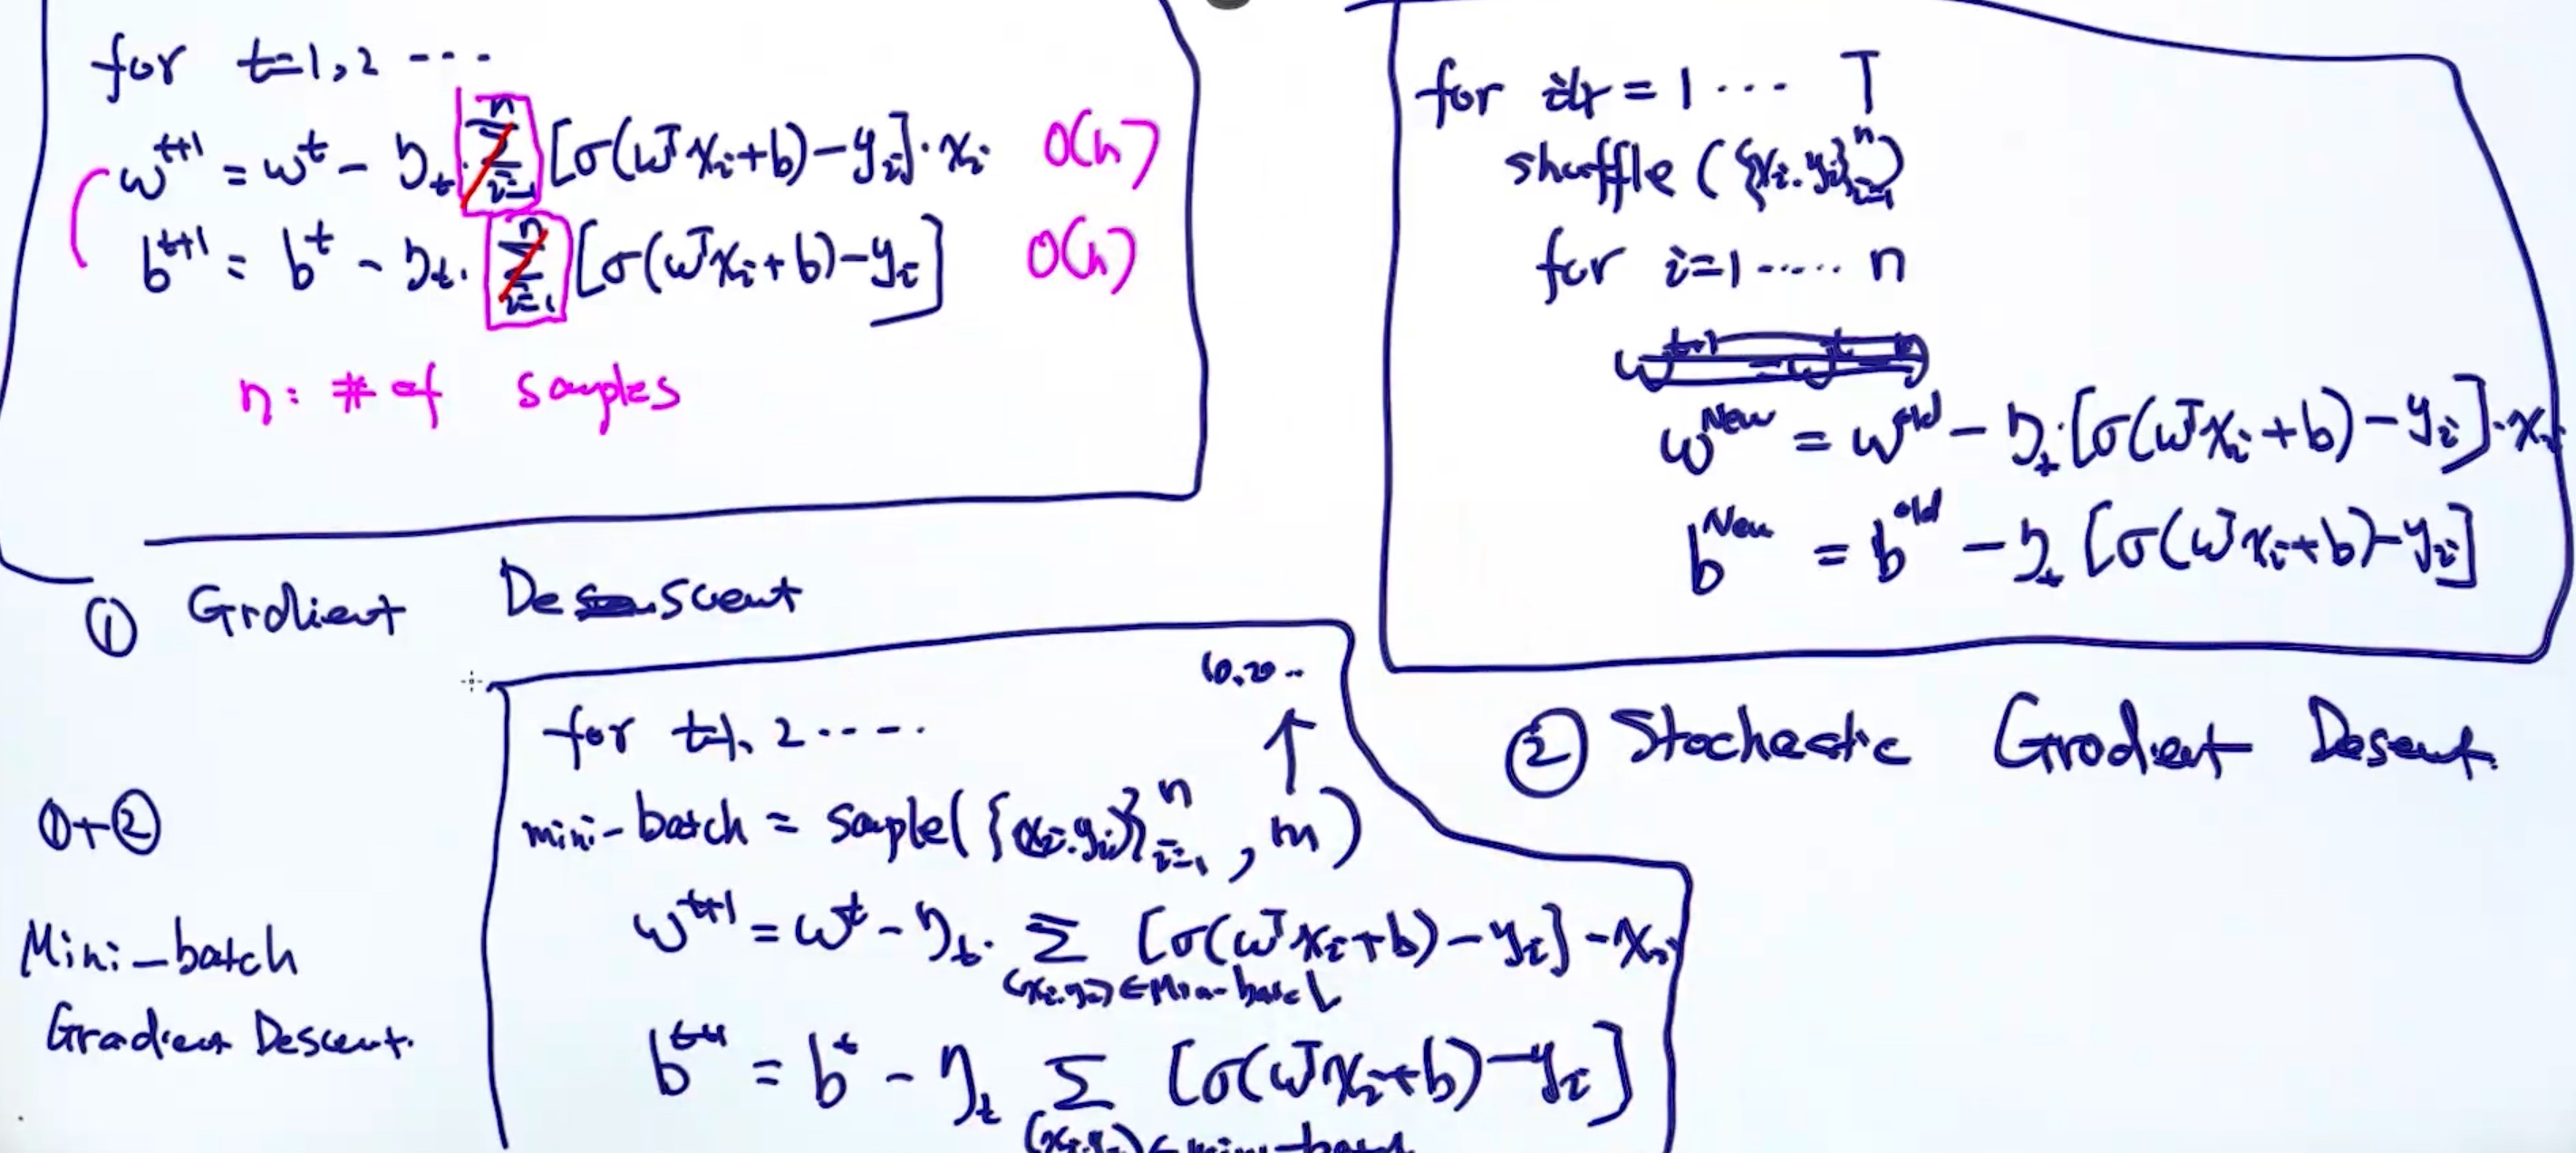 for t=1,2 ---
w^{t+1} = w^t - η_t · Σ_{i=1}^n [σ(w^T x_i+b)-y_i]·x_i O(n)
b^{t+1} = b^t - η_t · Σ_{i=1}^n [σ(w^T x_i+b)-y_i] O(n)
n: # of samples
① Gradient Descent
for itr = 1 ··· T
shuffle ({x_i.y_i}_{i=1}^n)
for i=1 ····· n
w^{t+1} = w^t - η
w^{New} = w^{old} - η_t·[σ(w^T x_i+b)-y_i]·x_i
b^{New} = b^{old} - η_t [σ(w^T x_i+b)-y_i]
② Stochastic Gradient Descent
①+②
Mini-batch
Gradient Descent.
10.20 ..
for t=1, 2 ----.
mini-batch = sample({x_i.y_i}_{i=1}^n, m)
w^{t+1} = w^t - η_t · Σ_{(x_i.y_i)∈Mini-batch} [σ(w^T x_i+b)-y_i]·x_i
b^{t+1} = b^t - η_t Σ_{(x_i.y_i)∈mini-batch} [σ(w^T x_i+b)-y_i]